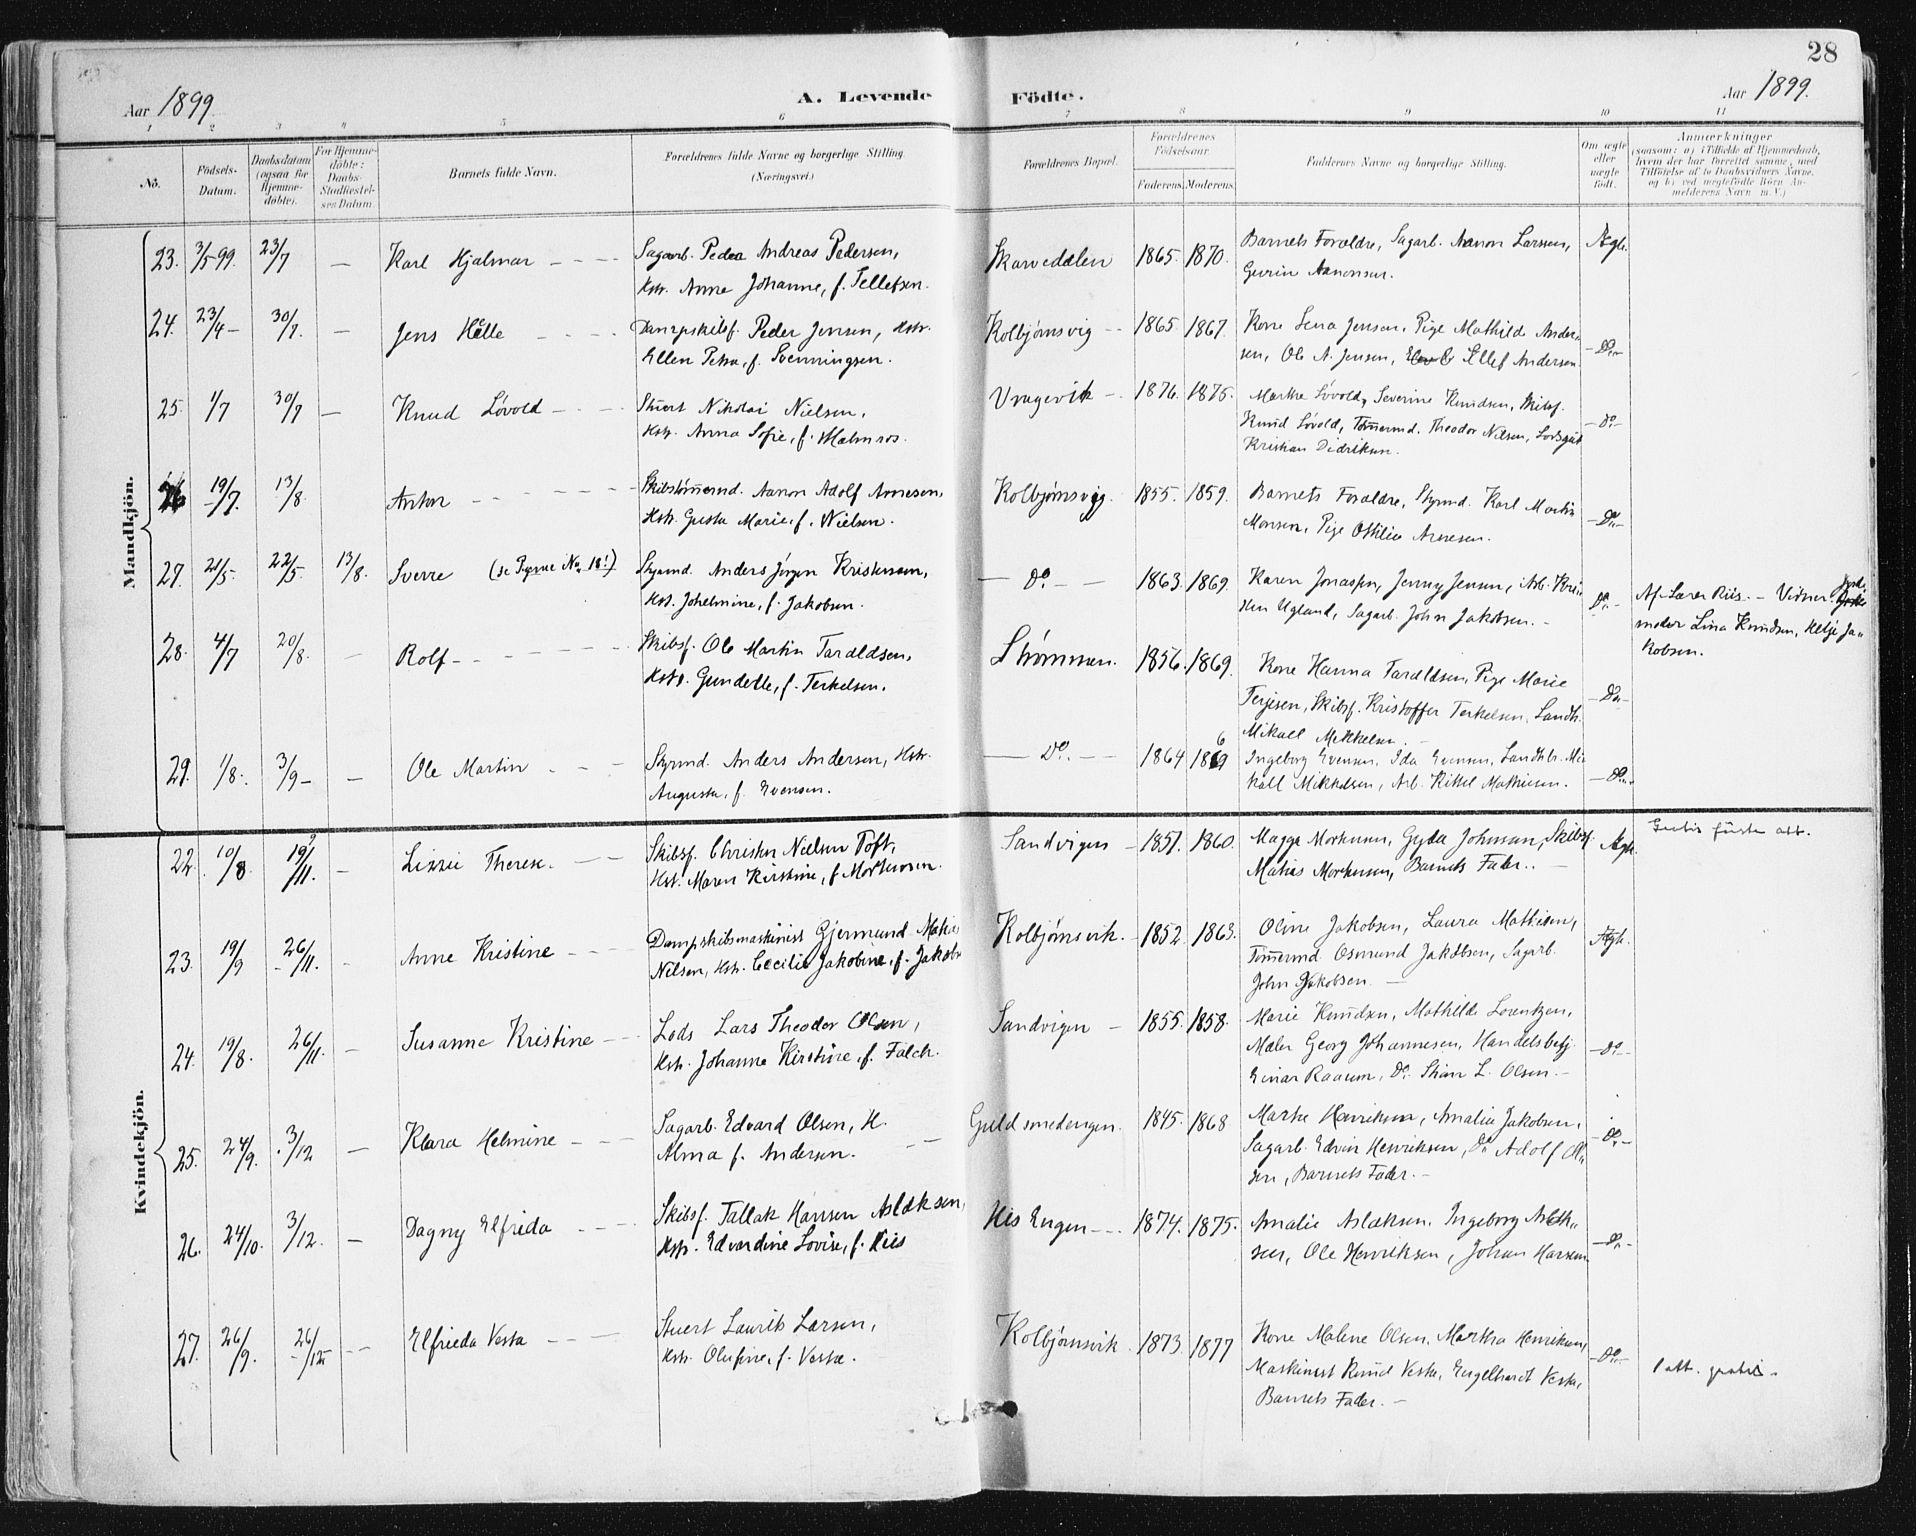 28
Aar 1899.
A. Levende Födte.
Aar 1899.
1 2 3 4 5 6 7 8 9 10 11
No.
Födsels-Datum.
Daabsdatum (ogsaa for Hjemme-döbte).
For Hjemme-döbte: Daabs-Stadfæstelses Datum.
Barnets fulde Navn.
Forældrenes fulde Navne og borgerlige Stilling (Næringsvei.)
Forældrenes Bopæl.
Forældrenes Födselsaar.
Faderens. Moderens.
Faddernes Navne og borgerlige Stilling.
Om ægte eller uægte födt.
Anmærkninger
(saasom: a) i Tilfælde af Hjemmedaab,
hvem der har forrettet samme, med
Tilföielse af to Daabsvidners Navne,
og b) ved uægtefödte Börn An-
melderens Navn m. V.)
Mandkjön.
23. 3/5 99. 23/7 — Karl Hjalmar — Sagarb. Peder Andreas Pedersen,
Hstr. Anne Johanne, f. Tellefsen.
Skarvedalen 1865. 1870. Barnets Forældre, Sagarb. Aanon Larssen,
Gurin Aanonsen. Ægte
24. 23/4 — 30/7. — Jens Helle — Dampskibsf. Peder Jensen, Hstr.
Ellen Petra, f. Svenningsen.
Kolbjørnsvig — 1865. 1867. Kone Lena Jensen, Pige Mathilde Ander-
sen, Ole A. Jensen, Ellef Andersen. — Do —
25. 1/7 30/7 — Knud Løvold — Stuert Nikolai Nielsen,
Hstr. Anna Sofie, f. Malmros.
Vragevik — 1876. 1875. Marthe Løvold, Severine Knudsen, Skibsf.
Knud Løvold, Tømmermd. Theodor Nilsen, Lodsgut
Kristian Didriksen. — Do —
26 19/7. 13/8. Anton — Skibstømmermd. Aanon Adolf Arnesen,
Hstr. Gusta Marie, f. Nielsen.
Kolbjørnsvig. 1855. 1859. Barnets Forældre, Styrmd. Karl Martin
Monsen, Pige Othilie Arnesen. — Do —
27. 21/5. 22/5. 13/8. Sverre (se Pigerne No. 18!) Styrmd. Anders Jørgen Kristensen,
Hst. Johelmine, f. Jakobsen.
— Do. — 1863. 1869. Karen Jonassen, Jenny Jensen, Arb. Kri-
sten Ugland, Sagarb. John Jakobsen. — Do. — Af Lærer Riis. — Vidner: Jorde-
moder Lina Knudsen, Ketje Ja-
kobsen.
28. 4/7 20/8. — Rolf — Skibsf. Ole Martin Taraldsen,
Hstr. Gundelle, f. Terkelsen.
Strømmen. 1856. 1869. Kone Hanna Taraldsen, Pige Marie
Terjesen, Skibsf. Kristoffer Terkelsen, Landh.
Mikael Mikkelsen. — Do —
29. 1/8. 3/9 — — Ole Martin — Styrmd. Anders Andersen, Hstr.
Augusta, f. Evensen.
— Do. — 1864 1866 Ingeborg Evensen, Ida Evensen, Landhbr. Mi-
kall Mikkelsen, Arb. Kittel Mathisen. — Do —
Kvindekjön.
22. 10/8. 19/11. — Lizzie Therese. — Skibsf. Christen Nielsen Toft,
Hst. Maren Kirstine, f. Mortensen.
Sandvigen — 1857. 1860. Magga Mortensen, Gyda Johnsen, Skibsf.
Matias Mortensen, Barnets Fader. — Ægte. Gratis første att.
23. 19/9 26/11. — Anne Kristine — Dampskibsmaskinist Gjermund Matias
Nilsen, Hst. Cecilie Jakobine, f. Jakobs
Kolbjørnsvik. 1852. 1863. Oline Jakobsen, Laura Mathisen,
Tømmermd. Osmund Jakobsen, Sagarb.
John Jakobsen. — Ægte.
24. 19/8. 26/11. — Susanne Kristine — Lods Lars Theodor Olsen,
Hst. Johanne Kirstine, f. Falch.
Sandvigen — 1855. 1858. Marie Knudsen, Mathilde Lorentzen,
Maler Georg Johannesen, Handelsbetj.
Einar Raaum, Do. Skam L. Olsen. — — Do —
25. 24/9. 3/12 — Klara Helmine — Sagarb. Edvard Olsen, H.
Alma f. Andersen.
Guldsmedengen. 1845. 1868 Marthe Henriksen, Amalie Jakobsen,
Sagarb. Edvin Henriksen, Do Adolf Ol-
sen, Barnets Fader. — — Do. —
26. 24/10. 3/12. — Dagny Elfrida — Skibsf. Tallak Hansen Aslaksen,
Hstr. Edvardine Lovise, f. Riis
His Engen — 1874. 1875. Amalie Aslaksen, Ingeborg Aslak-
sen, Ole Henriksen, Johan Hansen — Do —
27. 26/9. 26/12 — Elfrieda Vesta — Stuert Laurits Larsen,
Hstr. Olufine, f. Vesta.
Kolbjørnsvik. 1873. 1877 Kone Malene Olsen, Martha Henriksen,
Maskinist Knud Vesta, Engelhardt Vesta,
Barnets Fader. — — Do — 1 att. gratis.